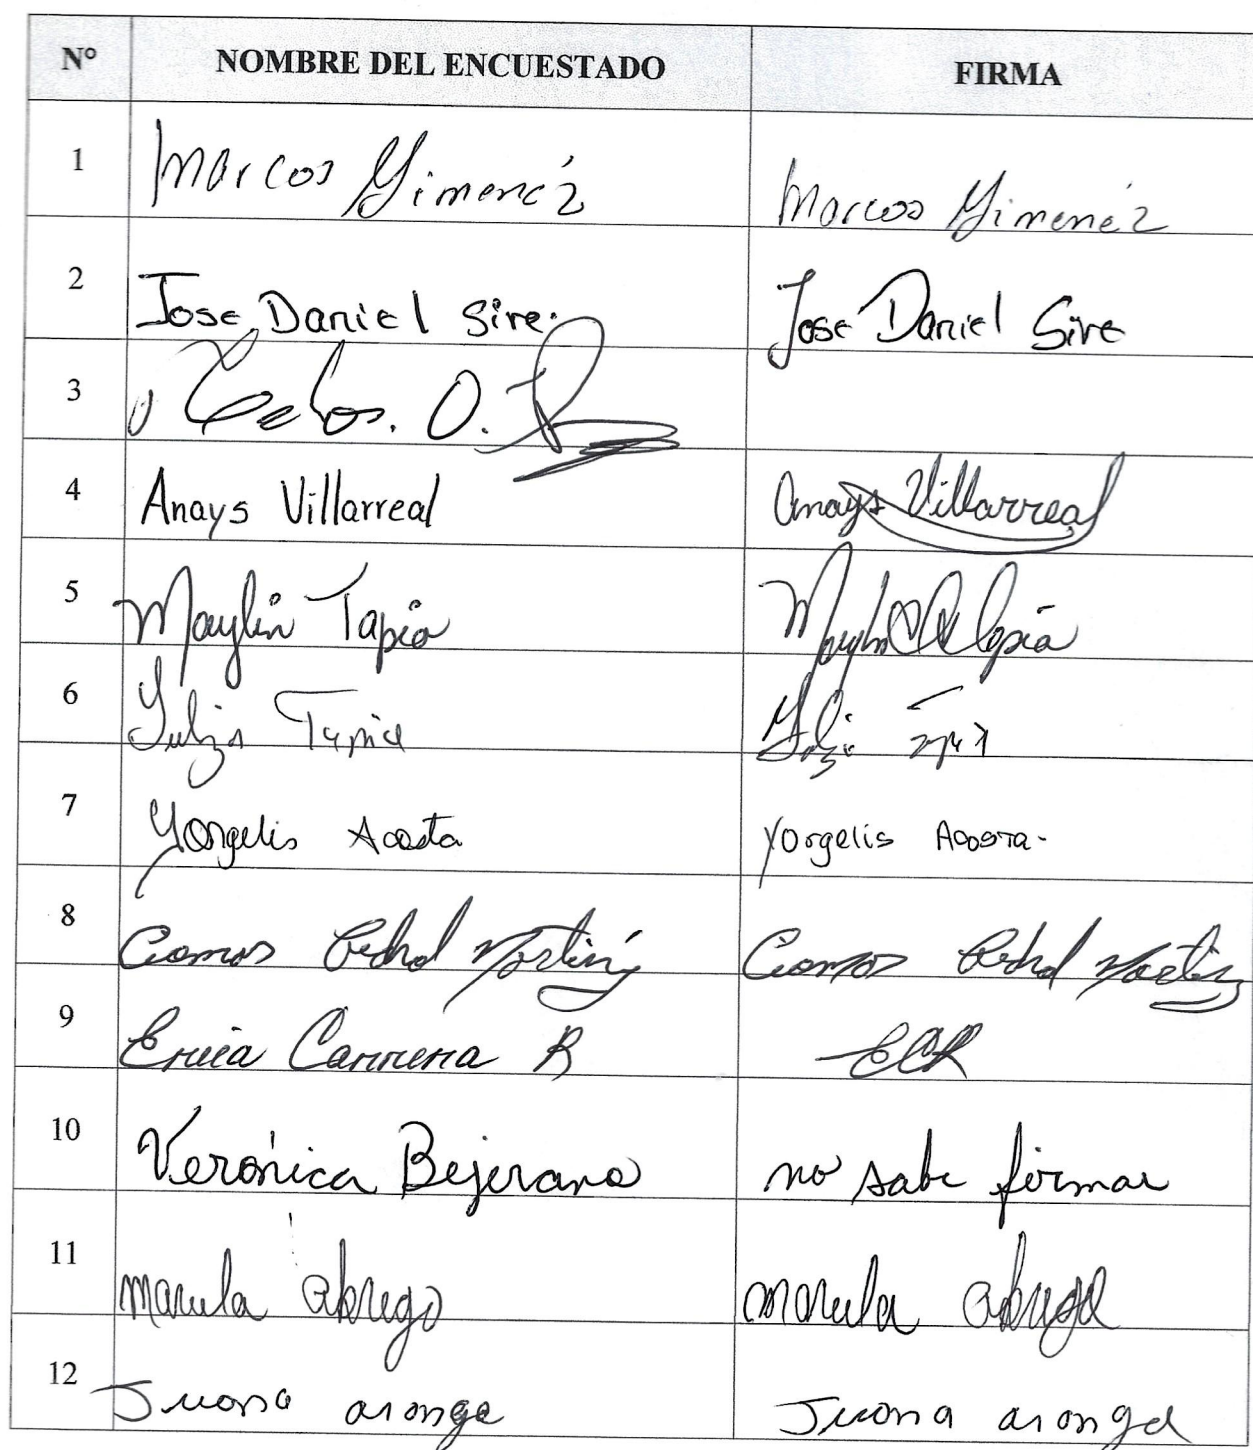 N° NOMBRE DEL ENCUESTADO FIRMA
1 Marcos Yimenéz Marcos Yimenéz
2 Jose Daniel Sire. Jose Daniel Sire
3 O.
4 Anays Villarreal Anays Villarreal
5 Maylin Tapia Tapia
6 Yuliza Tapia
7 Yorgelis Acosta Yorgelis Acosta.
8
9 Erica Carrera R ECR
10 Verónica Bejerano no sabe firmar
11 marula abrego marula abrego
12 Juana aranga Juana aranga